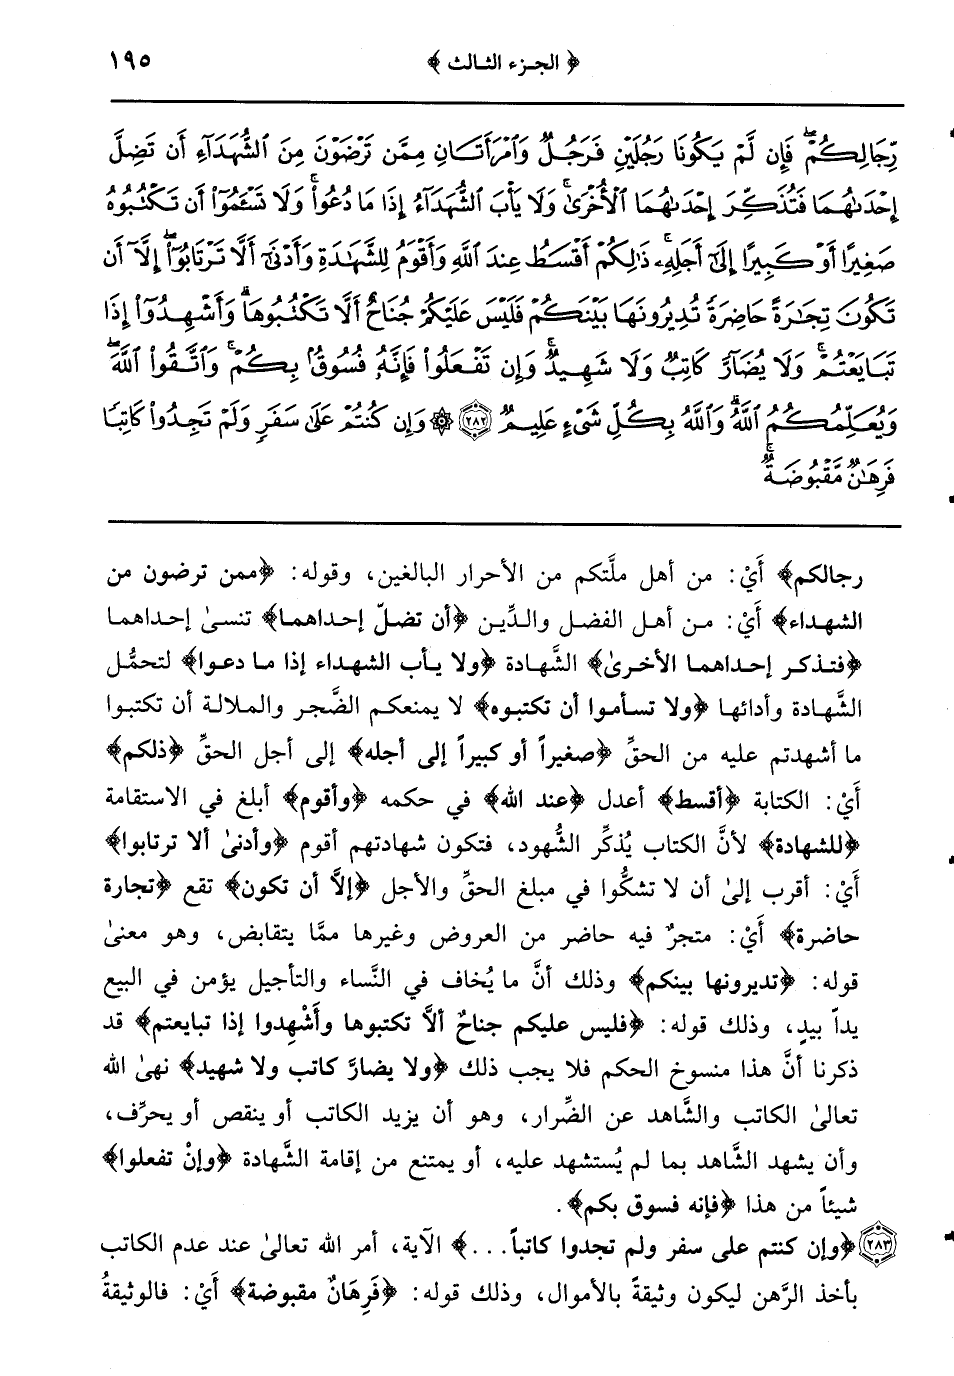 ﴿ الجـزء الثـالث ﴾ ١٩٥
رِّجَالِكُمْ ۖ فَإِن لَّمْ يَكُونَا رَجُلَيْنِ فَرَجُلٌ وَٱمْرَأَتَانِ مِمَّن تَرْضَوْنَ مِنَ ٱلشُّهَدَآءِ أَن تَضِلَّ
إِحْدَىٰهُمَا فَتُذَكِّرَ إِحْدَىٰهُمَا ٱلْأُخْرَىٰ ۚ وَلَا يَأْبَ ٱلشُّهَدَآءُ إِذَا مَا دُعُوا۟ ۚ وَلَا تَسْـَٔمُوٓا۟ أَن تَكْتُبُوهُ
صَغِيرًا أَوْ كَبِيرًا إِلَىٰٓ أَجَلِهِۦ ۚ ذَٰلِكُمْ أَقْسَطُ عِندَ ٱللَّهِ وَأَقْوَمُ لِلشَّهَٰدَةِ وَأَدْنَىٰٓ أَلَّا تَرْتَابُوٓا۟ ۖ إِلَّآ أَن
تَكُونَ تِجَٰرَةً حَاضِرَةً تُدِيرُونَهَا بَيْنَكُمْ فَلَيْسَ عَلَيْكُمْ جُنَاحٌ أَلَّا تَكْتُبُوهَا ۗ وَأَشْهِدُوٓا۟ إِذَا
تَبَايَعْتُمْ ۚ وَلَا يُضَآرَّ كَاتِبٌ وَلَا شَهِيدٌ ۚ وَإِن تَفْعَلُوا۟ فَإِنَّهُۥ فُسُوقٌۢ بِكُمْ ۗ وَٱتَّقُوا۟ ٱللَّهَ ۖ
وَيُعَلِّمُكُمُ ٱللَّهُ ۗ وَٱللَّهُ بِكُلِّ شَىْءٍ عَلِيمٌ ٢٨٢ ۞ وَإِن كُنتُمْ عَلَىٰ سَفَرٍ وَلَمْ تَجِدُوا۟ كَاتِبًا
فَرِهَٰنٌ مَّقْبُوضَةٌ ۖ
رجالكم﴾ أَيْ: من أهل ملَّتكم من الأحرار البالغين، وقوله: ﴿ممن ترضون من
الشهداء﴾ أَيْ: من أهل الفضل والدِّين ﴿أن تضلّ إحداهما﴾ تنسىٰ إحداهما
﴿فتذكر إحداهما الأخرىٰ﴾ الشَّهادة ﴿ولا يأب الشهداء إذا ما دعوا﴾ لتحمُّل
الشَّهادة وأدائها ﴿ولا تسأموا أن تكتبوه﴾ لا يمنعكم الضَّجر والملالة أن تكتبوا
ما أشهدتم عليه من الحقِّ ﴿صغيراً أو كبيراً إلى أجله﴾ إلى أجل الحقِّ ﴿ذلكم﴾
أَيْ: الكتابة ﴿أقسط﴾ أعدل ﴿عند الله﴾ في حكمه ﴿وأقوم﴾ أبلغ في الاستقامة
﴿للشهادة﴾ لأنَّ الكتاب يُذكِّر الشُّهود، فتكون شهادتهم أقوم ﴿وأدنىٰ ألا ترتابوا﴾
أَيْ: أقرب إلىٰ أن لا تشكُّوا في مبلغ الحقِّ والأجل ﴿إلاَّ أن تكون﴾ تقع ﴿تجارة
حاضرة﴾ أَيْ: متجرٌ فيه حاضر من العروض وغيرها ممَّا يتقابض، وهو معنىٰ
قوله: ﴿تديرونها بينكم﴾ وذلك أنَّ ما يُخاف في النَّساء والتأجيل يؤمن في البيع
يداً بيدٍ، وذلك قوله: ﴿فليس عليكم جناحٌ ألاَّ تكتبوها وأَشْهِدوا إذا تبايعتم﴾ قد
ذكرنا أنَّ هذا منسوخ الحكم فلا يجب ذلك ﴿ولا يضارَّ كاتب ولا شهيد﴾ نهىٰ الله
تعالىٰ الكاتب والشَّاهد عن الضِّرار، وهو أن يزيد الكاتب أو ينقص أو يحرِّف،
وأن يشهد الشَّاهد بما لم يُستشهد عليه، أو يمتنع من إقامة الشَّهادة ﴿وإنْ تفعلوا﴾
شيئاً من هذا ﴿فإنه فسوق بكم﴾.
٢٨٣ ﴿وإن كنتم على سفر ولم تجدوا كاتباً...﴾ الآية، أمر الله تعالىٰ عند عدم الكاتب
بأخذ الرَّهن ليكون وثيقةً بالأموال، وذلك قوله: ﴿فَرِهَانٌ مقبوضة﴾ أَيْ: فالوثيقةُ